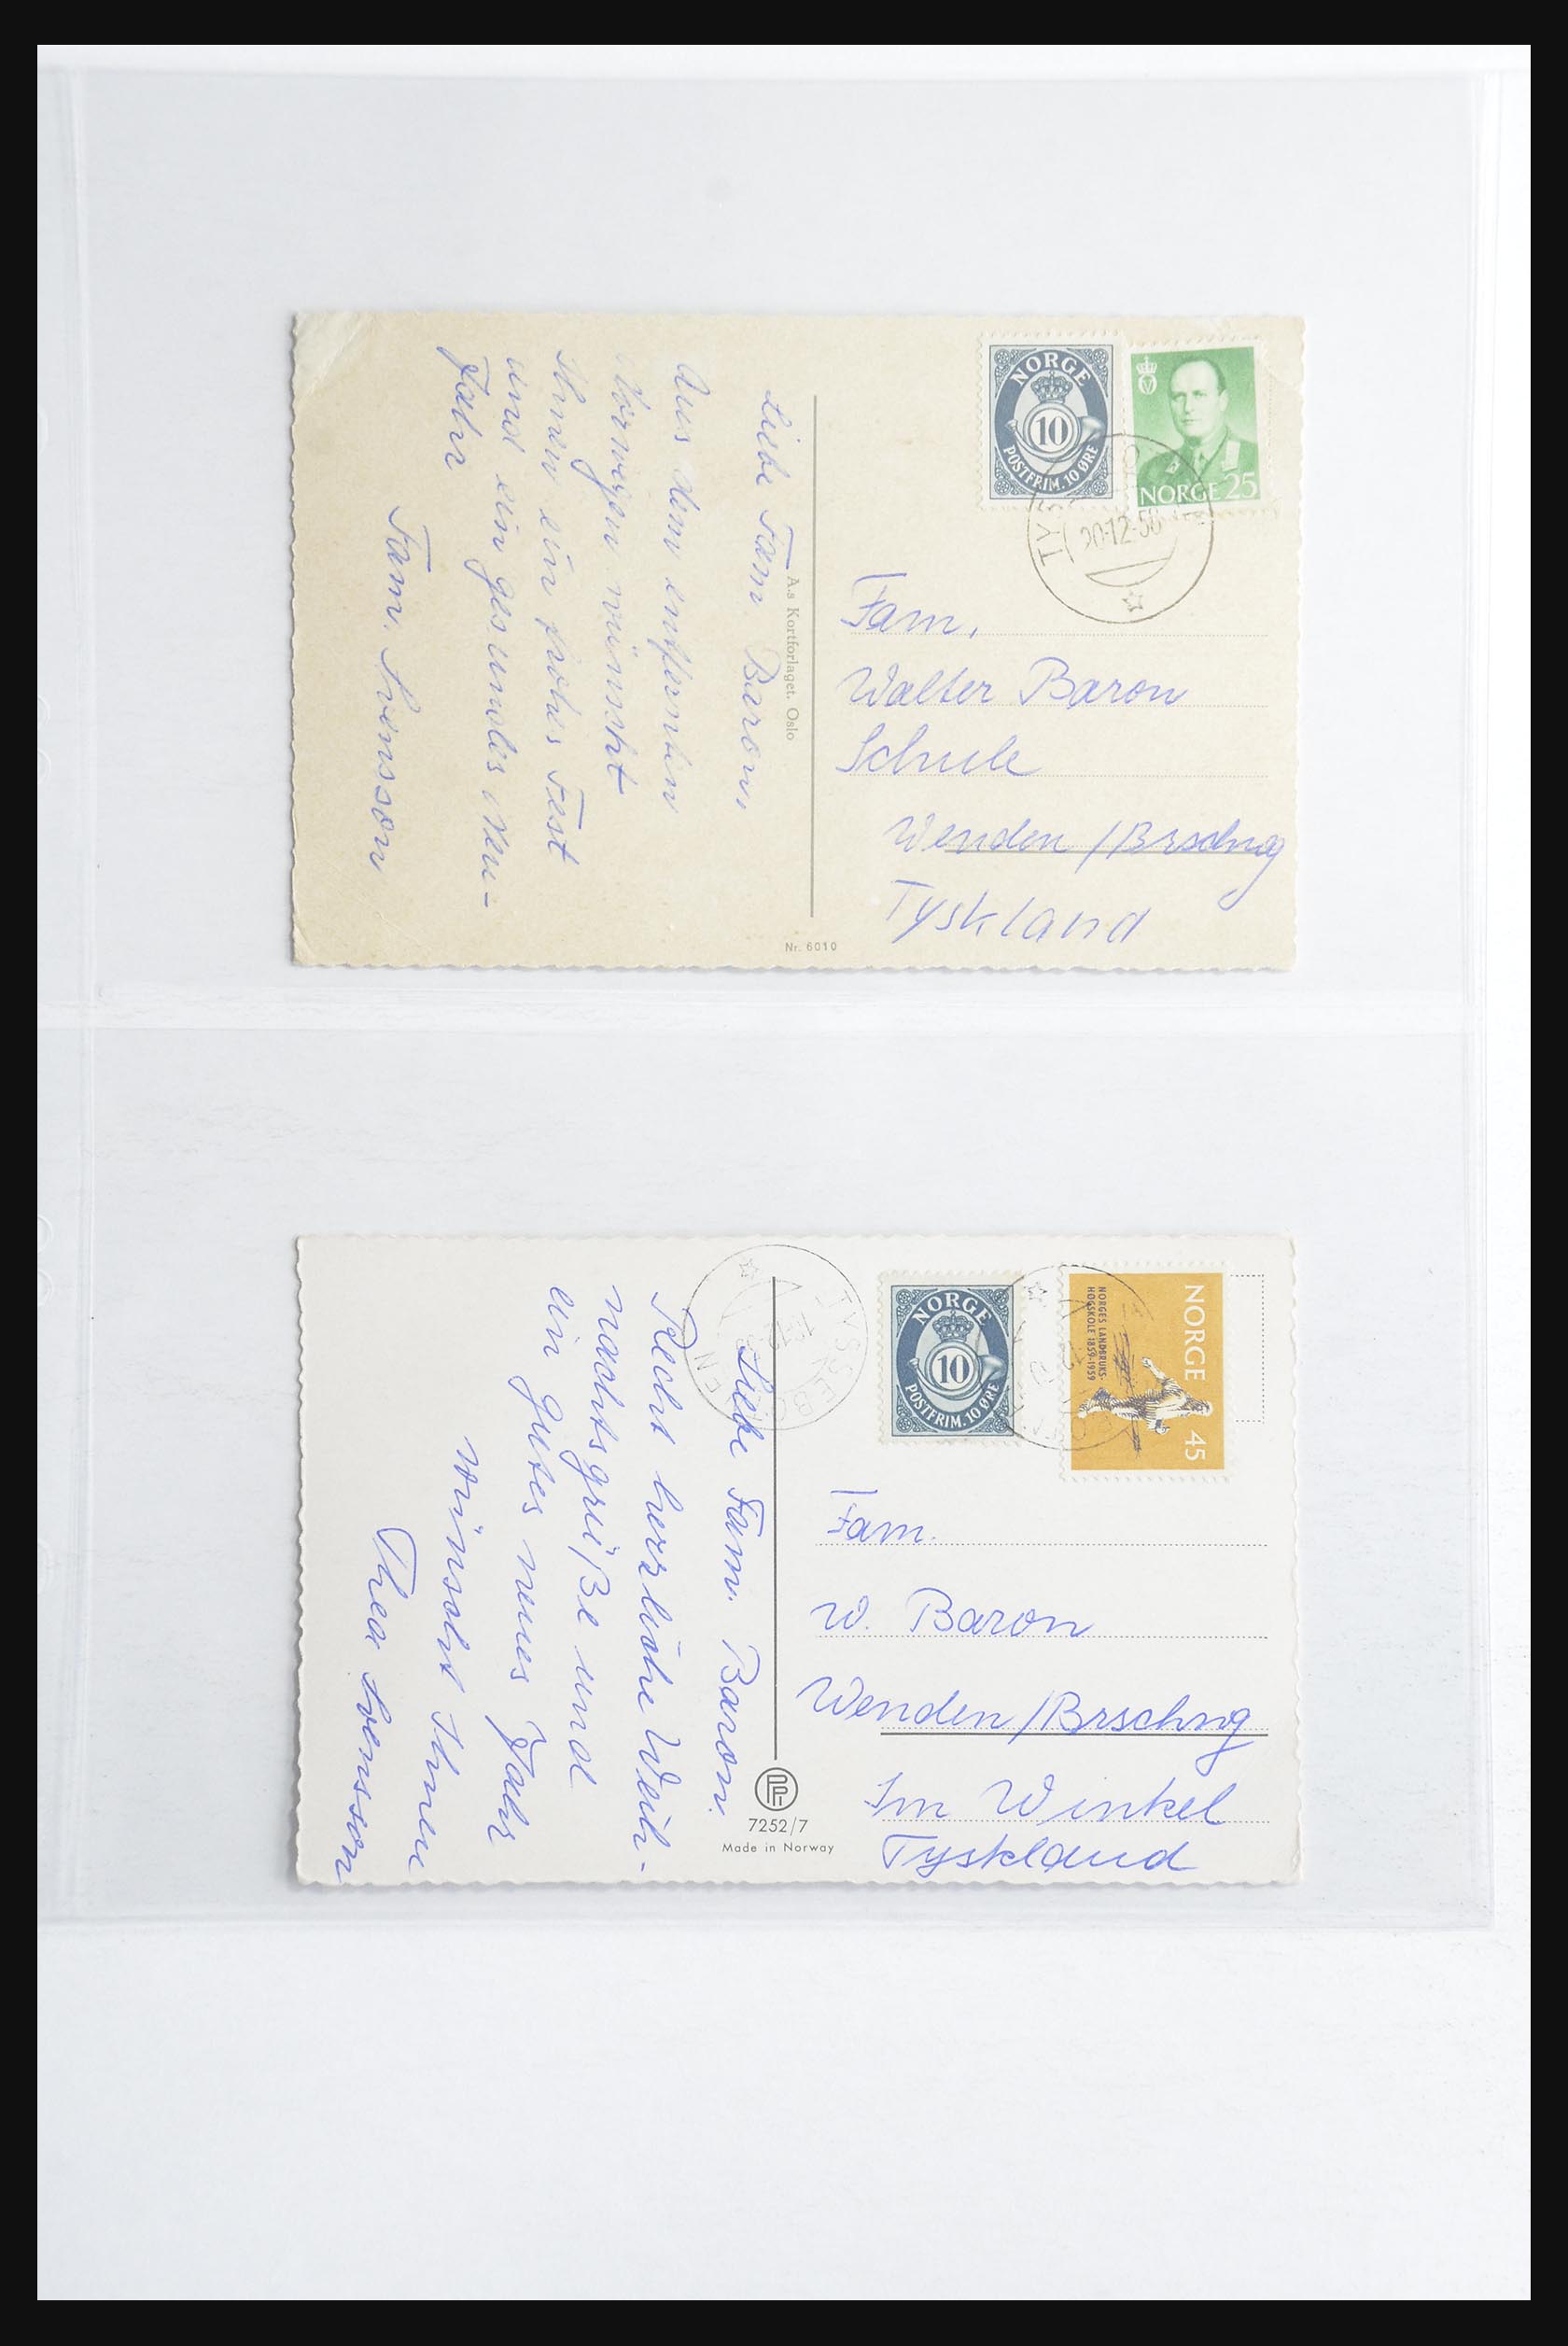 Liebe Fam. Baron,
Aus dem entfernten
Norwegen wünscht
Ihnen ein frohes Fest
und ein gesundes Neu-
Jahr
Fam. Svensson
A.s Kortforlaget. Oslo
Nr. 6010
NORGE
10
POSTFRIM. 10 ØRE
NORGE 25
20.12.58
Fam.
Walter Baron
Schule
Wenden / Brschng
Tyskland
Liebe Fam. Baron.
Recht herzliche Weih-
nachtsgrüße und
ein gutes neues Jahr
wünscht Ihnen
Thea Svensson
TYSSEBOTN
7252/7
Made in Norway
NORGE
10
POSTFRIM. 10 ØRE
NORGE 45
NORGES LANDBRUKS-
HØGSKOLE 1859-1959
Fam.
W. Baron
Wenden / Brschng
Im Winkel
Tyskland